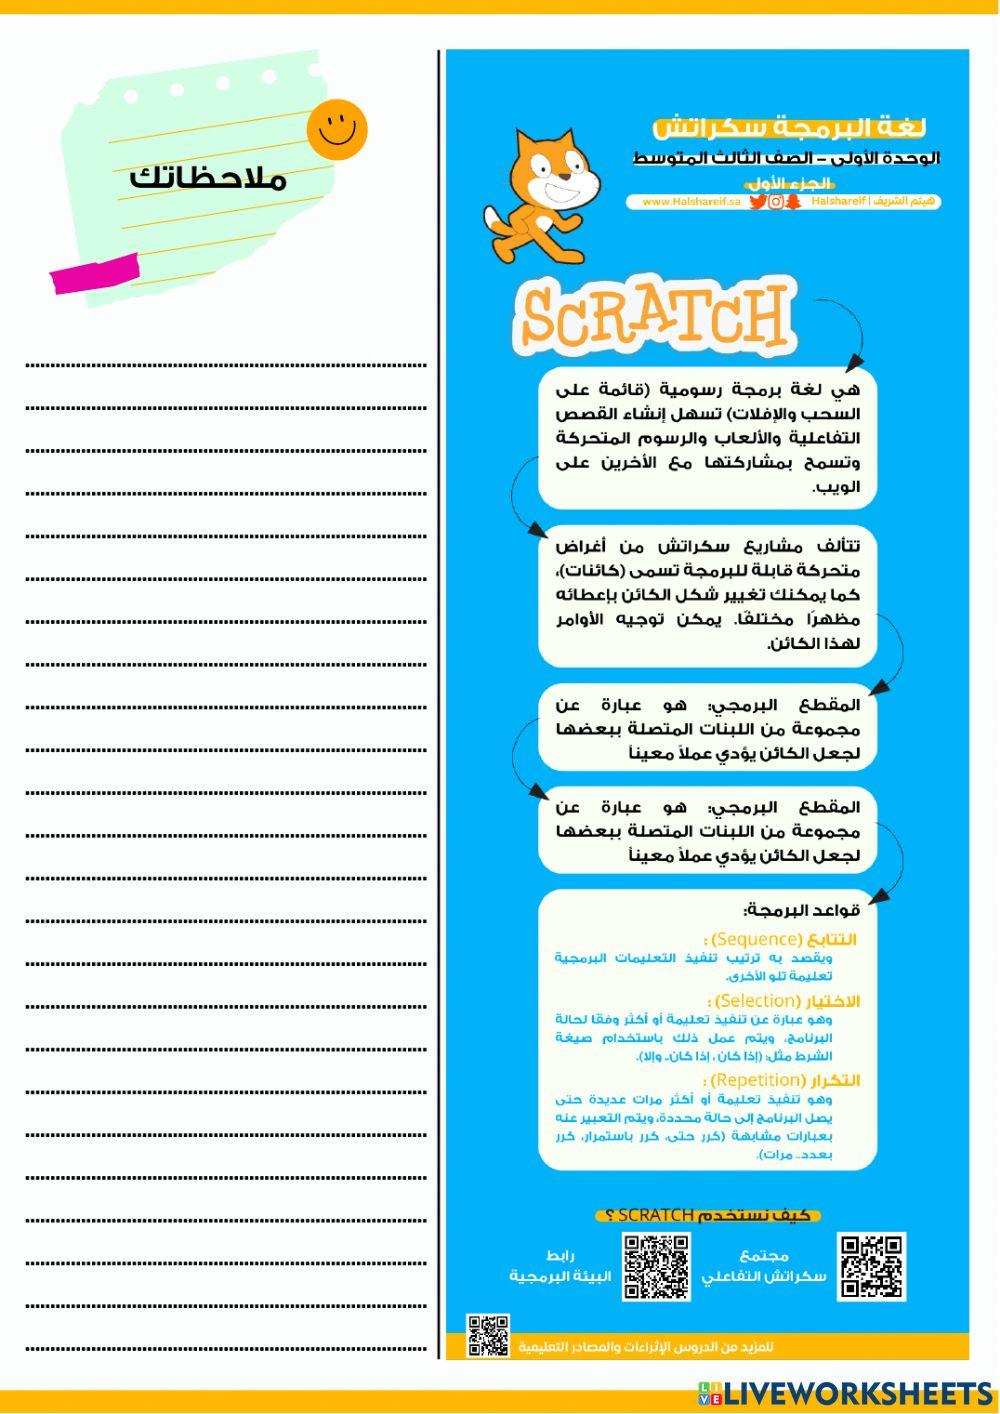 لغة البرمجة سكراتش
الوحدة الأولى – الصف الثالث المتوسط
الجزء الأول
هيثم الشريف | Halshareif www.Halshareif.sa
SCRATCH
هي لغة برمجة رسومية (قائمة على
السحب والإفلات) تسهل إنشاء القصص
التفاعلية والألعاب والرسوم المتحركة
وتسمح بمشاركتها مع الأخرين على
الويب.
تتألف مشاريع سكراتش من أغراض
متحركة قابلة للبرمجة تسمى (كائنات)،
كما يمكنك تغيير شكل الكائن بإعطائه
مظهرًا مختلفًا. يمكن توجيه الأوامر
لهذا الكائن.
المقطع البرمجي: هو عبارة عن
مجموعة من اللبنات المتصلة ببعضها
لجعل الكائن يؤدي عملاً معيناً
المقطع البرمجي: هو عبارة عن
مجموعة من اللبنات المتصلة ببعضها
لجعل الكائن يؤدي عملاً معيناً
قواعد البرمجة:
التتابع (Sequence) :
ويقصد به ترتيب تنفيذ التعليمات البرمجية
تعليمة تلو الأخرى.
الاختيار (Selection) :
وهو عبارة عن تنفيذ تعليمة أو أكثر وفقًا لحالة
البرنامج، ويتم عمل ذلك باستخدام صيغة
الشرط مثل: (إذا كان ، إذا كان.. وإلا).
التكرار (Repetition) :
وهو تنفيذ تعليمة أو أكثر مرات عديدة حتى
يصل البرنامج إلى حالة محددة، ويتم التعبير عنه
بعبارات مشابهة (كرر حتى، كرر باستمرار، كرر
بعدد.. مرات).
كيف نستخدم SCRATCH ؟
مجتمع
سكراتش التفاعلي
رابط
البيئة البرمجية
للمزيد من الدروس الإثراءات والمصادر التعليمية
ملاحظاتك
LIVEWORKSHEETS